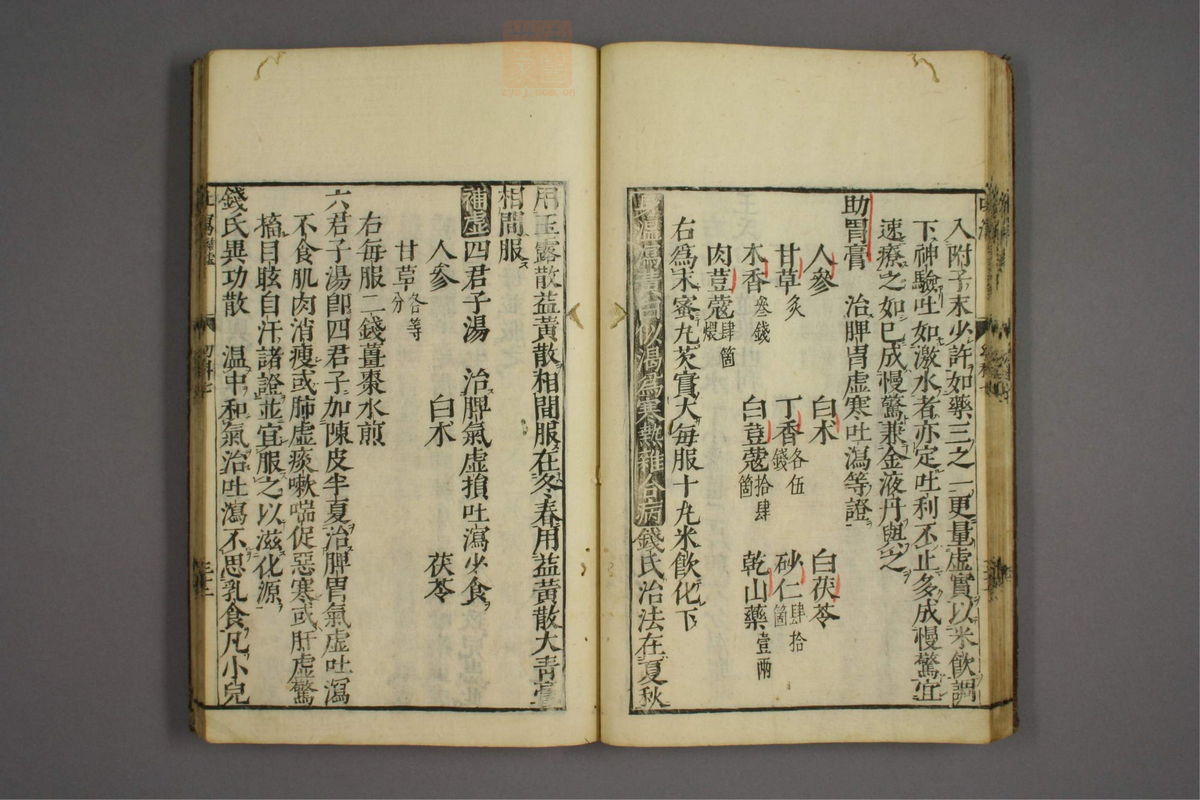 入附子末少許如藥三之一更量虛實以米飲調
下神驗吐如激水者亦定吐利不止多成慢驚宜
速療之如已成慢驚兼金液丹與之
助胃膏 治脾胃虛寒吐瀉等證
人參 白朮 白茯苓
甘草炙 丁香各伍錢 砂仁肆拾箇
木香叄錢 白荳蔻拾肆箇 乾山藥壹兩
肉荳蔻肆箇煨
右爲末蜜丸芡實大每服十丸米飲化下
身溫瀉青白似渴爲寒熱雜合病錢氏治法在夏秋
用玉露散益黃散相間服在冬春用益黃散大青膏
相間服
補虛四君子湯 治脾氣虛損吐瀉少食
人參 白朮 茯苓
甘草各等分
右每服二錢薑棗水煎
六君子湯卽四君子加陳皮半夏治脾胃氣虛吐瀉
不食肌肉消瘦或肺虛痰嗽喘促惡寒或肝虛驚
搐目眩自汗諸證並宜服之以滋化源
錢氏異功散 溫中和氣治吐瀉不思乳食凡小兒